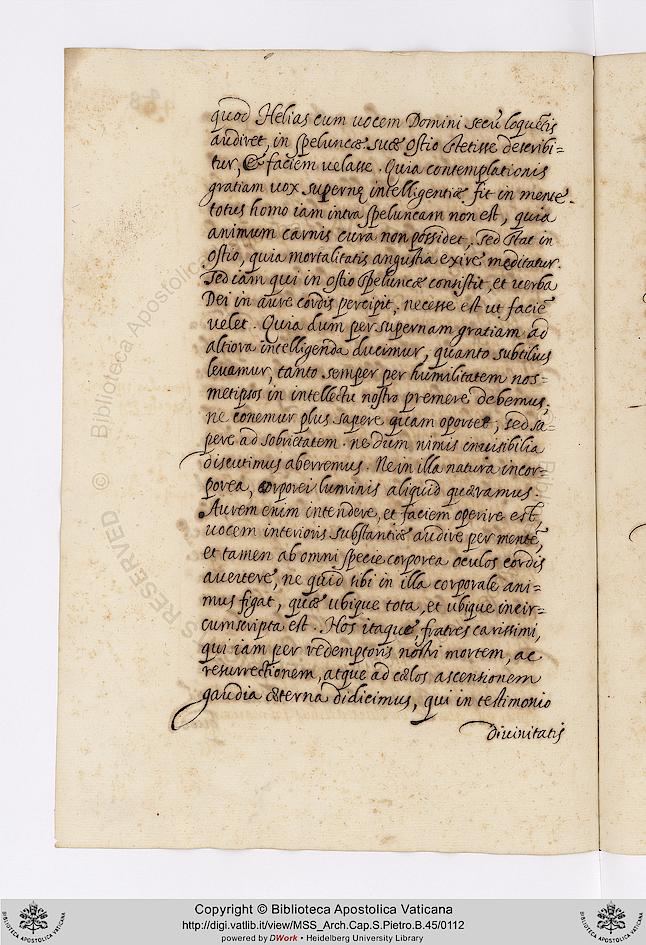 quod Helias cum uocem Domini secũ loquẽtis
audiret, in speluncæ suæ ostio stetisse describi=
tur, & faciem uelasse. Quia contemplationis
gratiam uox supernę intelligentiæ fit in mente.
totus homo iam intra speluncam non est, quia
animum carnis cura non possidet, sed stat in
ostio, quia mortalitatis angustia exire meditatur.
Sed iam qui in ostio speluncæ consistit, et uerba
Dei in aure cordis percipit, necesse est ut faciẽ
uelet. Quia dum per supernam gratiam ad
altiora intelligenda ducimur, quanto subtilius
leuamur, tanto semper per humilitatem nos=
metipsos in intellectu nostro premere debemus,
ne conemur plus sapere quam oportet, sed sa=
pere ad sobrietatem. ne dum nimis inuisibilia
discutimus aberremus. Ne in illa natura incor=
porea, corporei luminis aliquid quæramus.
Aurem enim intendere, et faciem operire est,
uocem interioris substantiæ audire per mentẽ,
et tamen ab omni specie corporea oculos cordis
auertere, ne quid sibi in illa corporale ani=
mus figat, quæ ubique tota, et ubique incir=
cumscripta est. Hos itaque, fratres carissimi,
qui iam per redemptoris nostri mortem, ac
resurrectionem, atque ad cælos ascensionem
gaudia æterna didicimus, qui in testimonio
Diuinitatis
Biblioteca Apostolica
©
RESERVED
Copyright © Biblioteca Apostolica Vaticana
http://digi.vatlib.it/view/MSS_Arch.Cap.S.Pietro.B.45/0112
powered by DWork • Heidelberg University Library